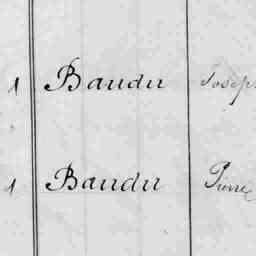 1 Baudu Joseph
1 Baudu Pierre